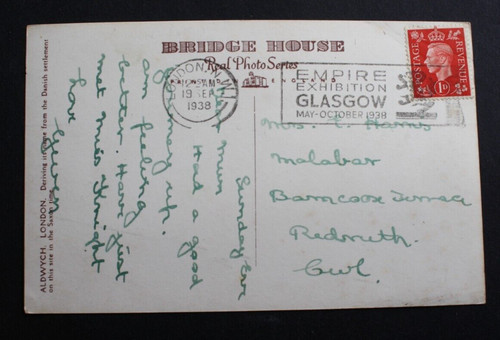 BRIDGE HOUSE
Real Photo Series
ENGLAND
LONDON. N.W.1
12 15 AM
19 SEP
1938
EMPIRE
EXHIBITION
GLASGOW
MAY-OCTOBER 1938
POSTAGE
REVENUE
1D
ALDWYCH. LONDON. Deriving its name from the Danish settlement
on this site in the Saxon time.
Sunday Eve
Dear Mum
Had a good
journey up.
am feeling
better. Have just
met Miss Knight
Love
Mrs. E. Harris
Malabar
Barncoose Terrace
Redruth.
Cwl.